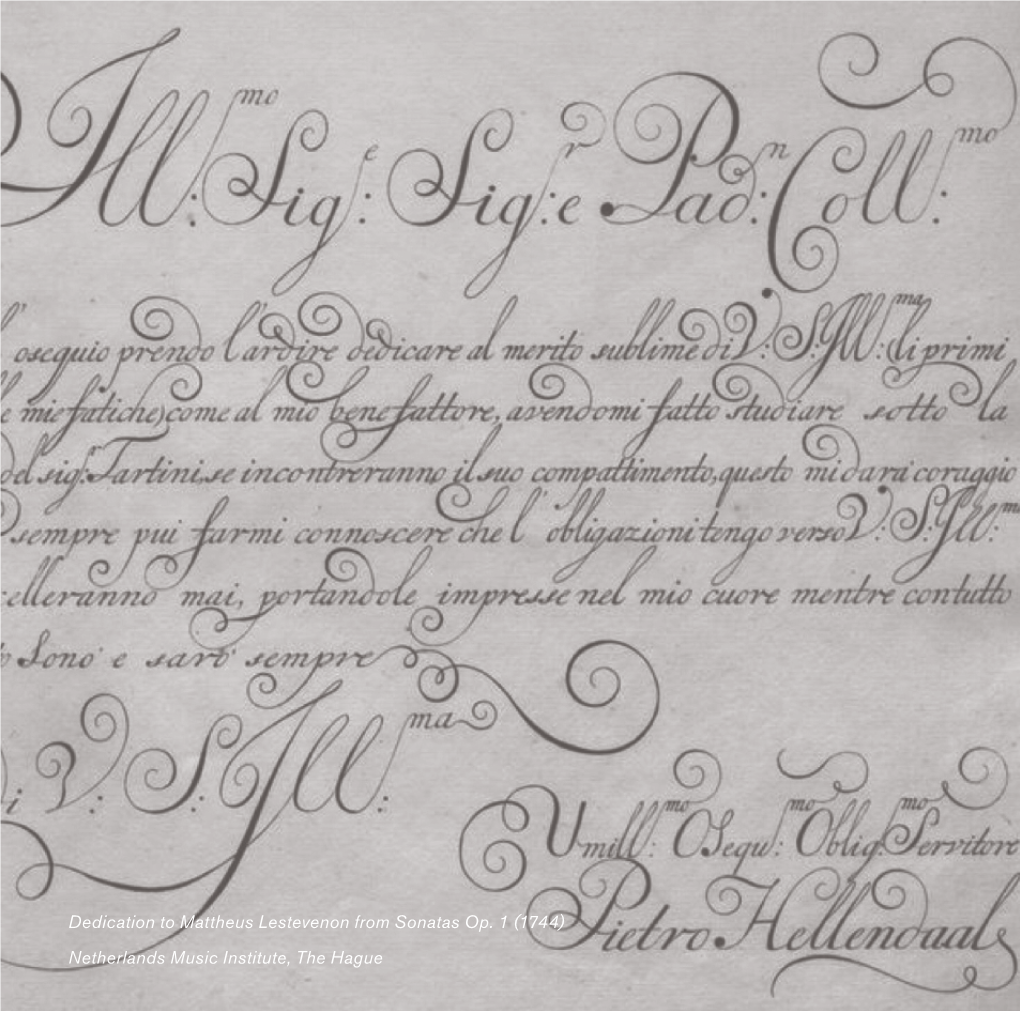 Ill:mo Sig:e Sig:r e Pad:n Coll:mo
osequio prendo l'ardire dedicare al merito sublime di V: S: Ill:ma (li primi
e mie fatiche) come al mio benefattore, avendomi fatto studiare sotto la
del sig:r Tartini, se incontreranno il suo compattimento, questo mi darà coraggio
sempre pui farmi connoscere che l' obligazioni tengo verso V: S: Ill:ma
elleranno mai, portandole impresse nel mio cuore mentre con tutto
Sono e sarò sempre
V: S: Ill:ma
Umill:mo OSequ:mo Oblig:mo Servitore
Pietro Hellendaal
Dedication to Mattheus Lestevenon from Sonatas Op. 1 (1744)
Netherlands Music Institute, The Hague